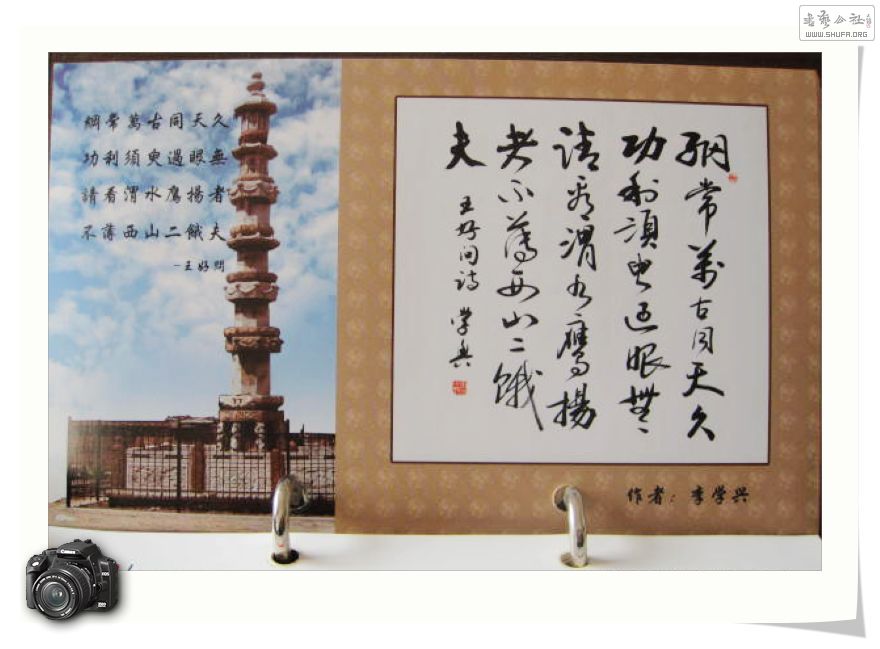 書藝公社
WWW.SHUFA.ORG
綱常萬古同天久
功利須臾過眼無
請看渭水鷹揚者
不薄西山二餓夫
-王好問
綱常萬古同天久
功利須臾過眼無
請看渭水鷹揚
者不薄西山二餓
夫
王好问詩 学兴
作者：李学兴
Canon